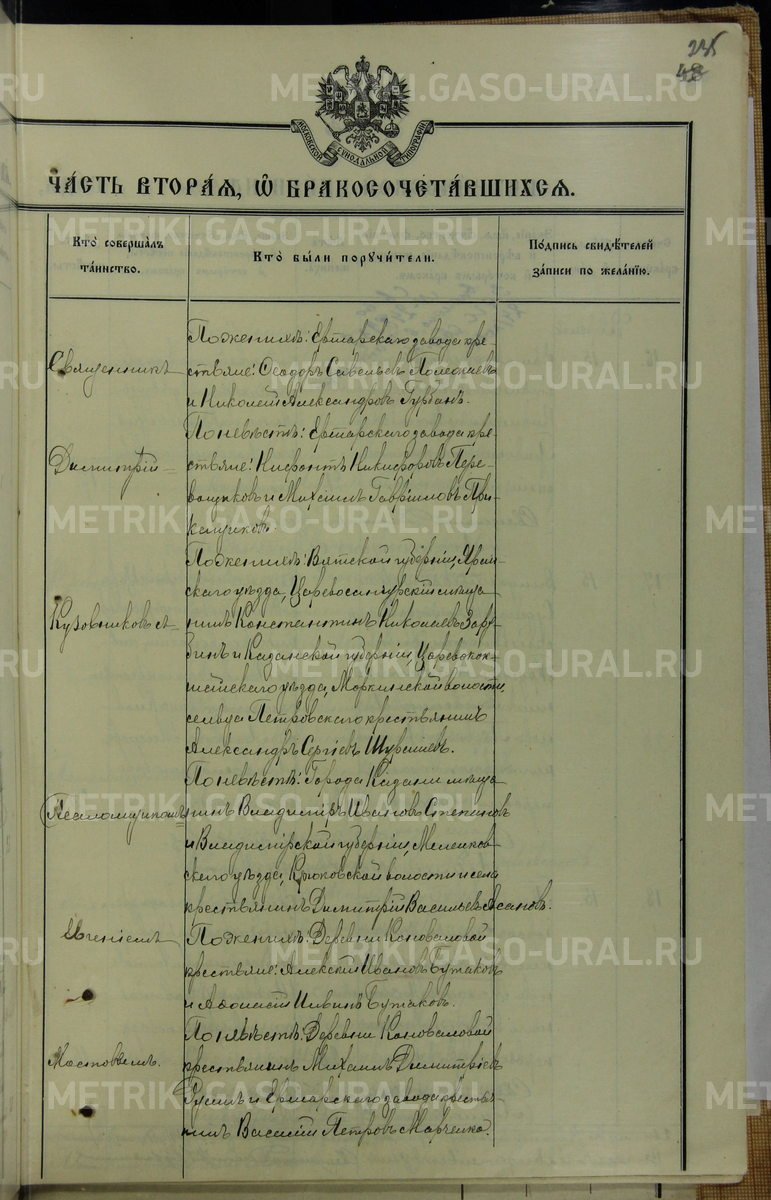 235
48
МОСКОВСКОЙ СѴНОДАЛЬНОЙ ТИПОГРАФІИ
ЧА́СТЬ ВТОРА́Я, Ѡ҆ БРАКОСОЧЕТА́ВШИХСЯ.
Кто̀ соверша́лъ та́инство.
Кто̀ бы́ли порꙋчи́тели.
По́дпись свидѣ́телей за́писи по жела́нїю.
Священникъ
Димитрій
Кузовниковъ съ
Псаломщикомъ
Евгеніемъ
Мостовымъ.
По женихѣ: Ертарскаго завода кре-
стьяне: Ѳеодоръ Савельевъ
и Николай Александровъ Гурбанъ.
По невѣстѣ: Ертарскаго завода кре-
стьяне: Нифонтъ Никифоровъ Пере-
вощиковъ и Михаилъ Гавріиловъ При-
кащиковъ.
По женихѣ: Вятской губерніи, Яран-
скаго уѣзда, Царевосанчурскій мѣща-
нинъ Константинъ Николаевъ Зару-
бинъ и Казанской губерніи, Царевокок-
шайскаго уѣзда, Моркинской волости,
сельца Петровскаго крестьянинъ
Александръ Сергѣевъ
По невѣстѣ: Города Казани мѣща-
нинъ Владиміръ Ивановъ Степановъ
и Владимірской губерніи, Меленков-
скаго уѣзда, Крюковской волости и села
крестьянинъ Димитрій Васильевъ Асановъ.
По женихѣ: Деревни Коноваловой
крестьяне: Алексѣй Ивановъ Бутаковъ
и Аѳанасій Ильинъ Бутаковъ.
По невѣстѣ: Деревни Коноваловой
крестьянинъ Михаилъ Димитріевъ
и Ертарскаго завода крестья-
нинъ Василій Петровъ Марченко.
METRIKI.GASO-URAL.RU